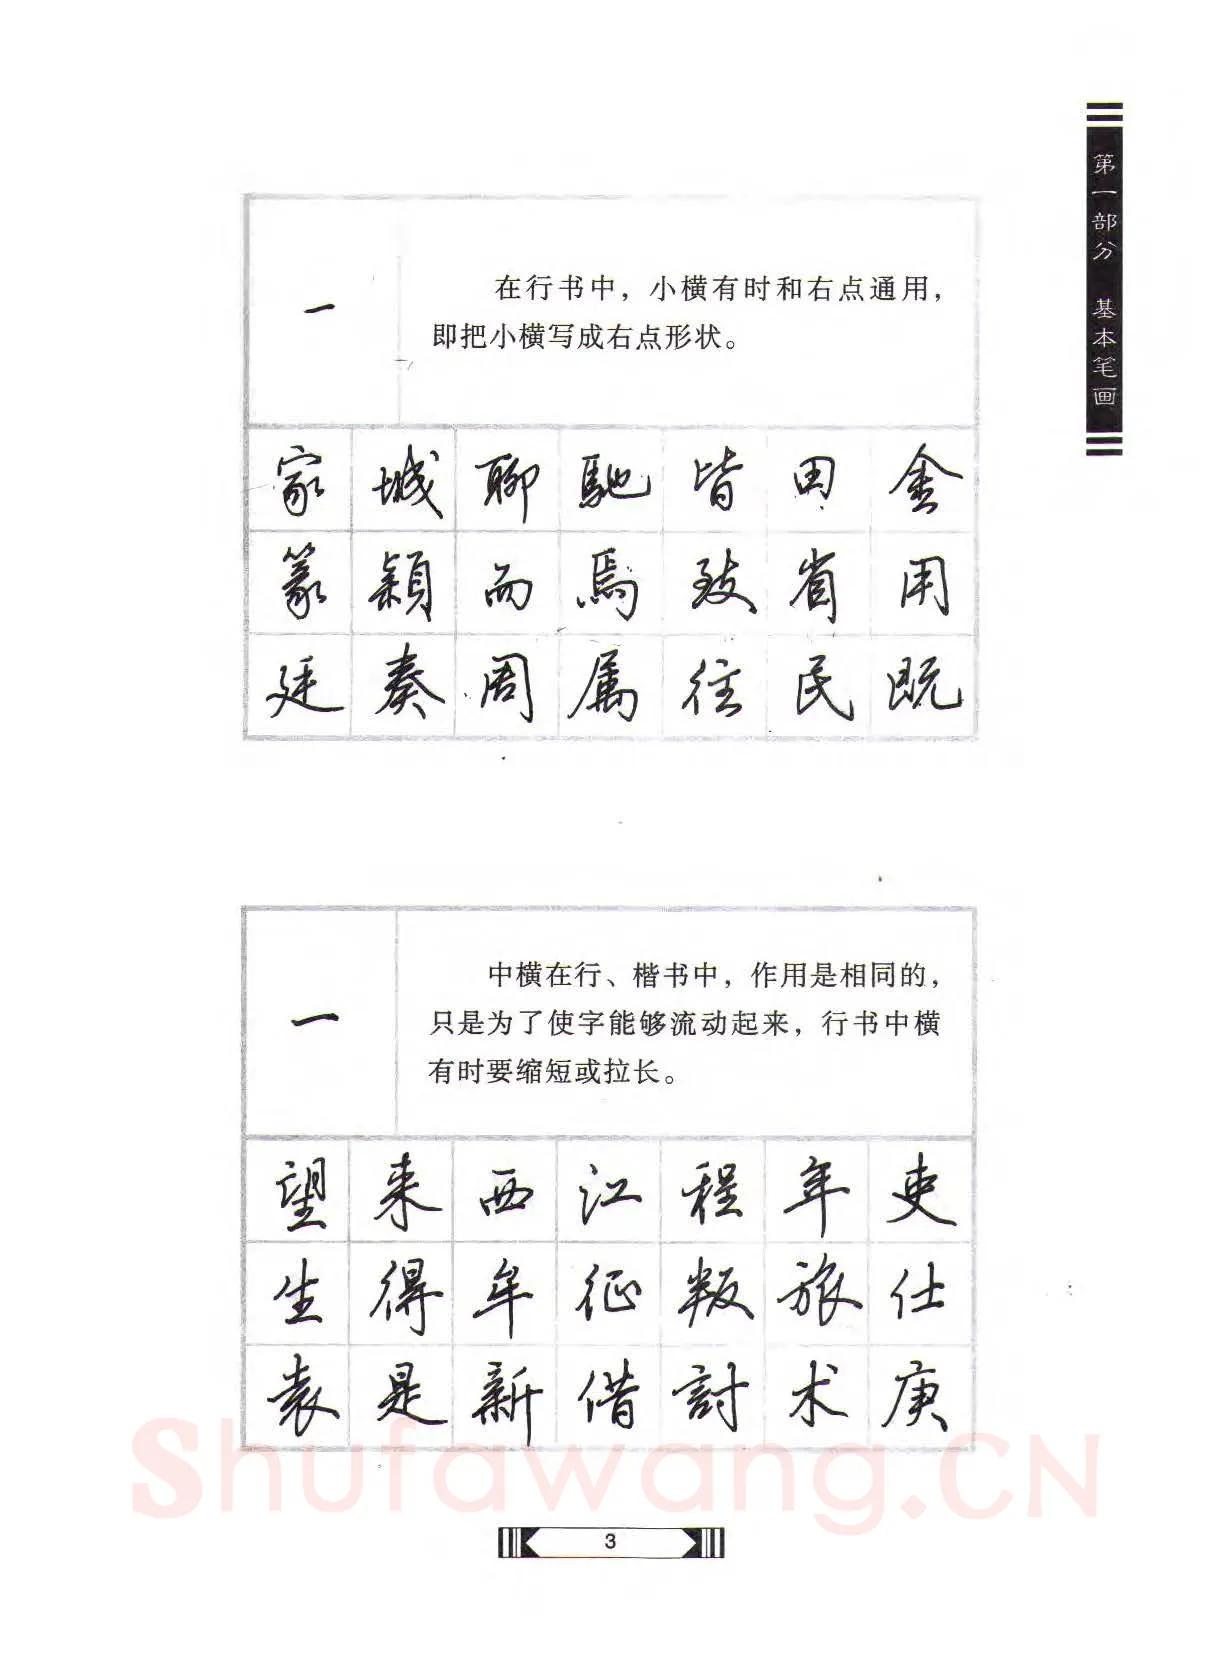 第一部分 基本笔画
一
在行书中，小横有时和右点通用，
即把小横写成右点形状。
家 城 聊 驰 皆 田 金
篆 颖 而 焉 致 省 用
廷 奏 周 属 往 民 既
一
中横在行、楷书中，作用是相同的，
只是为了使字能够流动起来，行书中横
有时要缩短或拉长。
望 来 西 江 程 年 吏
生 得 牟 征 叛 旅 仕
袁 是 新 借 討 术 庚
Shufawang.CN
3